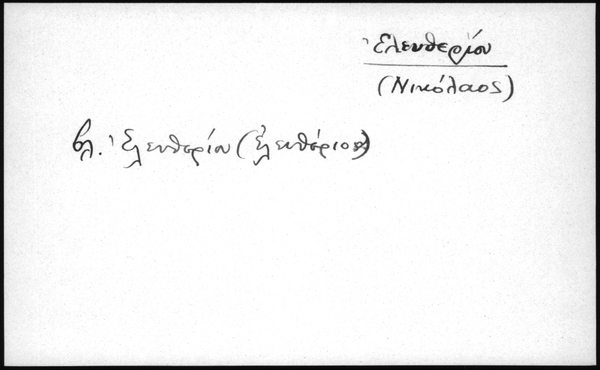 Ἐλευθερίου
(Νικόλαος)
βλ. Ἐλευθερίου (Ἐλευθέριος)